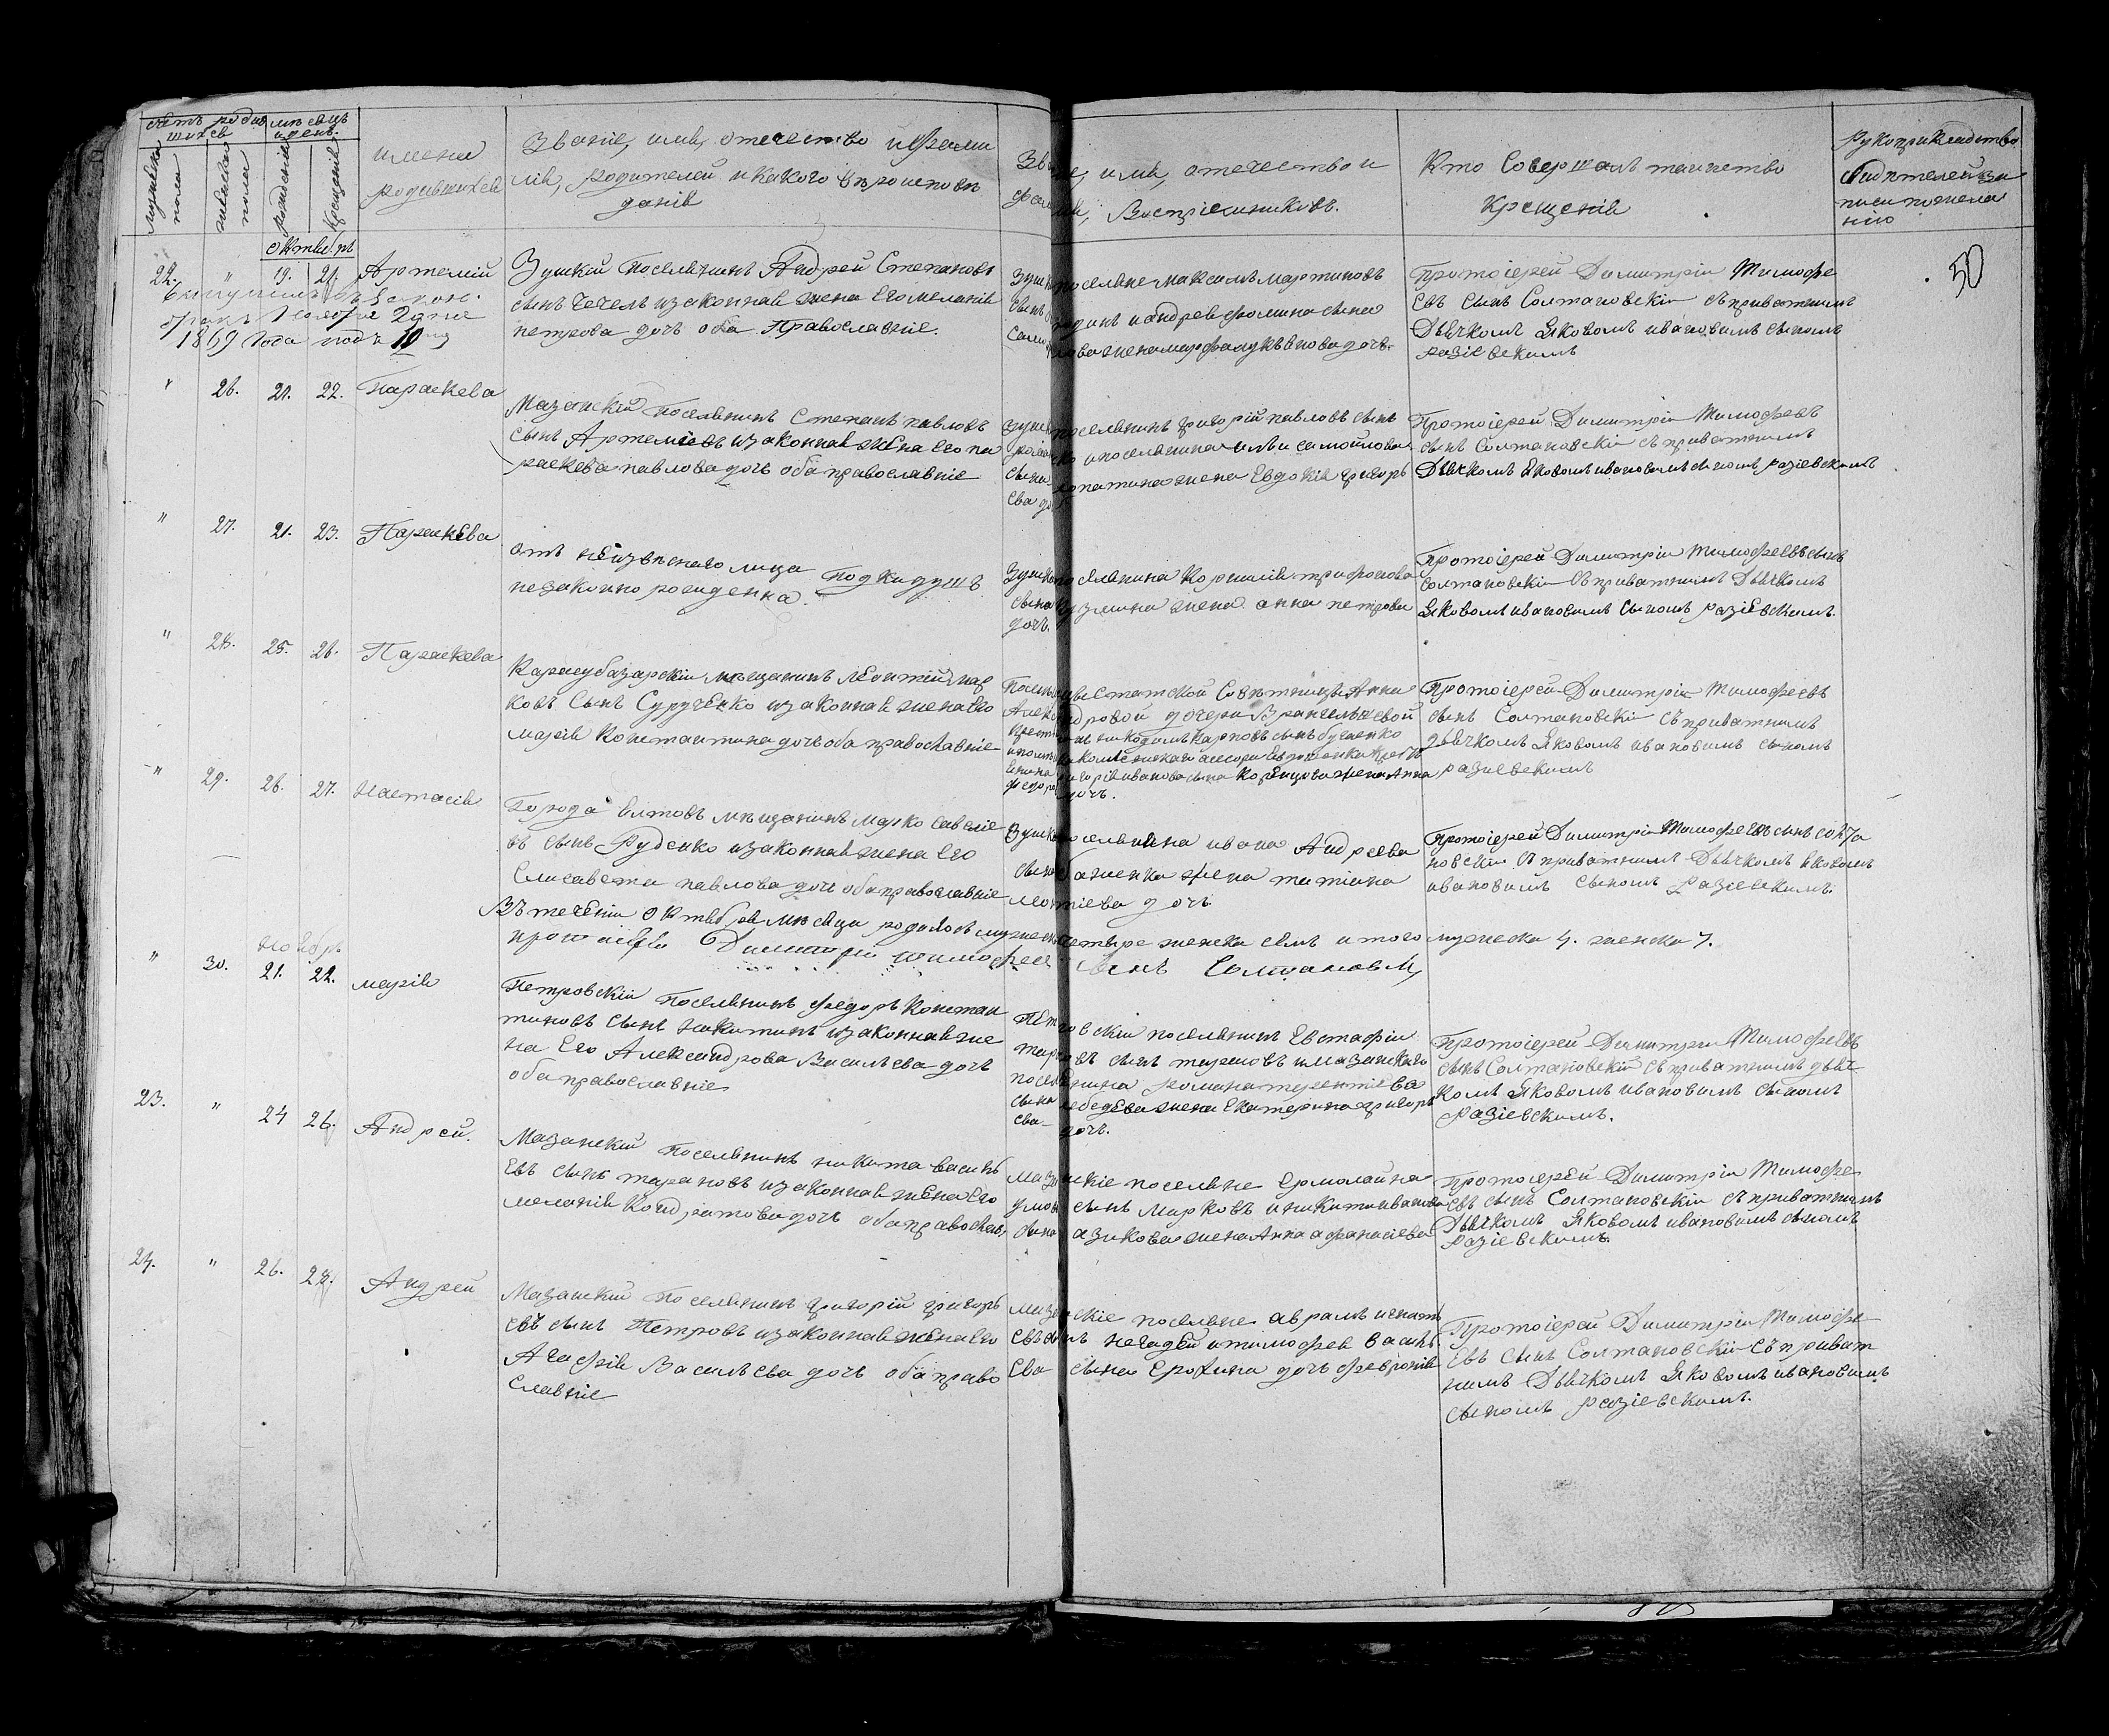 счетъ родив
шихся
мѣсяцъ
и день.
мужеска
пола
женска
пола
рожденія
крещенія
имена
родившихся
Званіе, имя, отечество и фами
лія, родителей и какого вѣроисповѣ
данія
Зва
е, имя, отечество и
фам
ія, Воспріемниковъ.
Кто Совершалъ таинство
Крещенія
Рукоприкладство
свидѣтелей за
писи по жела
нію
50
октяб.рь
22. " 19. 21. Артемій
1869 года подъ № 10
Зуйскій Поселянинъ Андрей Степановъ
сынъ Чечель изаконная жена Его меланія
петрова дочь оба Православніе.
поселяне максимъ мартиновъ
и андрея фомина сына
жена марфа лукьянова дочь
Протоіерей Димитрій Тимофе
евъ сынъ Солтановскій съ приватнимъ
Дьячкомъ Яковомъ ивановимъ сыномъ
разіевскимъ
" 26. 21. 22. Параскева
Мазанскій Поселянинъ Степанъ павловъ
сынъ Артемьевъ изаконная жена его па
раскева павлова дочь оба православніе
поселянинъ григорій павловъ сынъ
и поселянина ильи самойлова
сына лопатина жена Евдокія григорь
ева дочь
Протоіерей Димитрій Тимофеевъ
сынъ Солтановскій съ приватнимъ
Дьячкомъ Яковомъ ивановимъ сыномъ разіевскимъ
" 27. 21. 23. Параскева
отъ неизвѣснаго лица Подкидушъ
незаконно рожденна.
Зуйск поселянина Корнилія трифонова
сына Кузмина жена анна петрова
дочь.
Протоіерей Димитрій Тимофеевъ сынъ
солтановскій съ приватнимъ Дьячкомъ
Яковомъ ивановимъ сыномъ разіевскимъ.
" 28. 25. 26. Параскева
Карасубазарскій мѣщанинъ леонтій мар
ковъ сынъ Сурученко изаконная жена его
марія Константина дочь оба православніе
Статской Совѣтницы Анна
Александровой дочери
никодимъ Карповъ сынъ буценко
григорія иванова сына жена Анна
федоро дочь.
Протоіерей Димитрій Тимофеевъ
сынъ Солтановскій съ приватнимъ
дьячкомъ Яковомъ ивановимъ сыномъ
разіевскимъ
" 29. 26. 27. Настасія
Города мѣщанинъ марко савелье
въ сынъ Руденко изаконная жена его
Елисавета павлова дочь оба православніе
Зуйск поселянина ивана Андреева
сына баженка жена татіана
леонтіева дочь
Протоіерей Димитрій Тимофеевъ сынъ солта
новскій съ приватнимъ Дьячкомъ Яковомъ
ивановимъ сыномъ Разіевскимъ.
Въ теченіи Октября мѣсяца родилось мужеска четыре женска семь итого мужеска 4. женска 7.
протоіерей Димитрій тимофее сынъ Солтановск
ноябрь
" 30. 21. 22. марія
Петровскій поселянинъ федоръ Констан
тиновъ сынъ никитинъ изаконная же
на Его Александрова Васильева дочь
оба православніе
Петровскій поселянинъ Евстафій
тар въ сынъ тарановъ и мазанскаго
поселянина романа терентіева
сына лебедева жена Екатерина григорь
ева дочь.
Протоіерей Димитрій Тимофеевъ
сынъ Солтановскій съ приватнимъ дьяч
комъ Яковомъ ивановимъ сыномъ
Разіевскимъ.
23. " 24 26. Андрей.
Мазанскій Поселянинъ никита василь
евъ сынъ тарановъ изаконная жена его
меланія Кондратова дочь оба православ,
мазанскіе поселяне Ермолай на
умов сынъ марковъ и никити иванова
сына азикова жена Анна афанасіева
Протоіерей Димитрій Тимофе
евъ сынъ Солтановскій съ приватнимъ
Дьячкомъ Яковомъ ивановимъ сыномъ
Разіевскимъ.
24. " 26. 28. Андрей
Мазанскій Поселянинъ григорій григорь
евъ сынъ Петровъ изаконная жена его
Агафія Васильева дочь оба право
славніе
мазанскіе поселяне аврамъ игнать
евъ сынъ негадей и тимофея василь
ева сына Ерохина дочь февронія
Протоіерей Димитрій Тимофе
евъ сынъ Солтановскій съ приват
нимъ Дьячкомъ Яковомъ ивановимъ
сыномъ разіевскимъ.